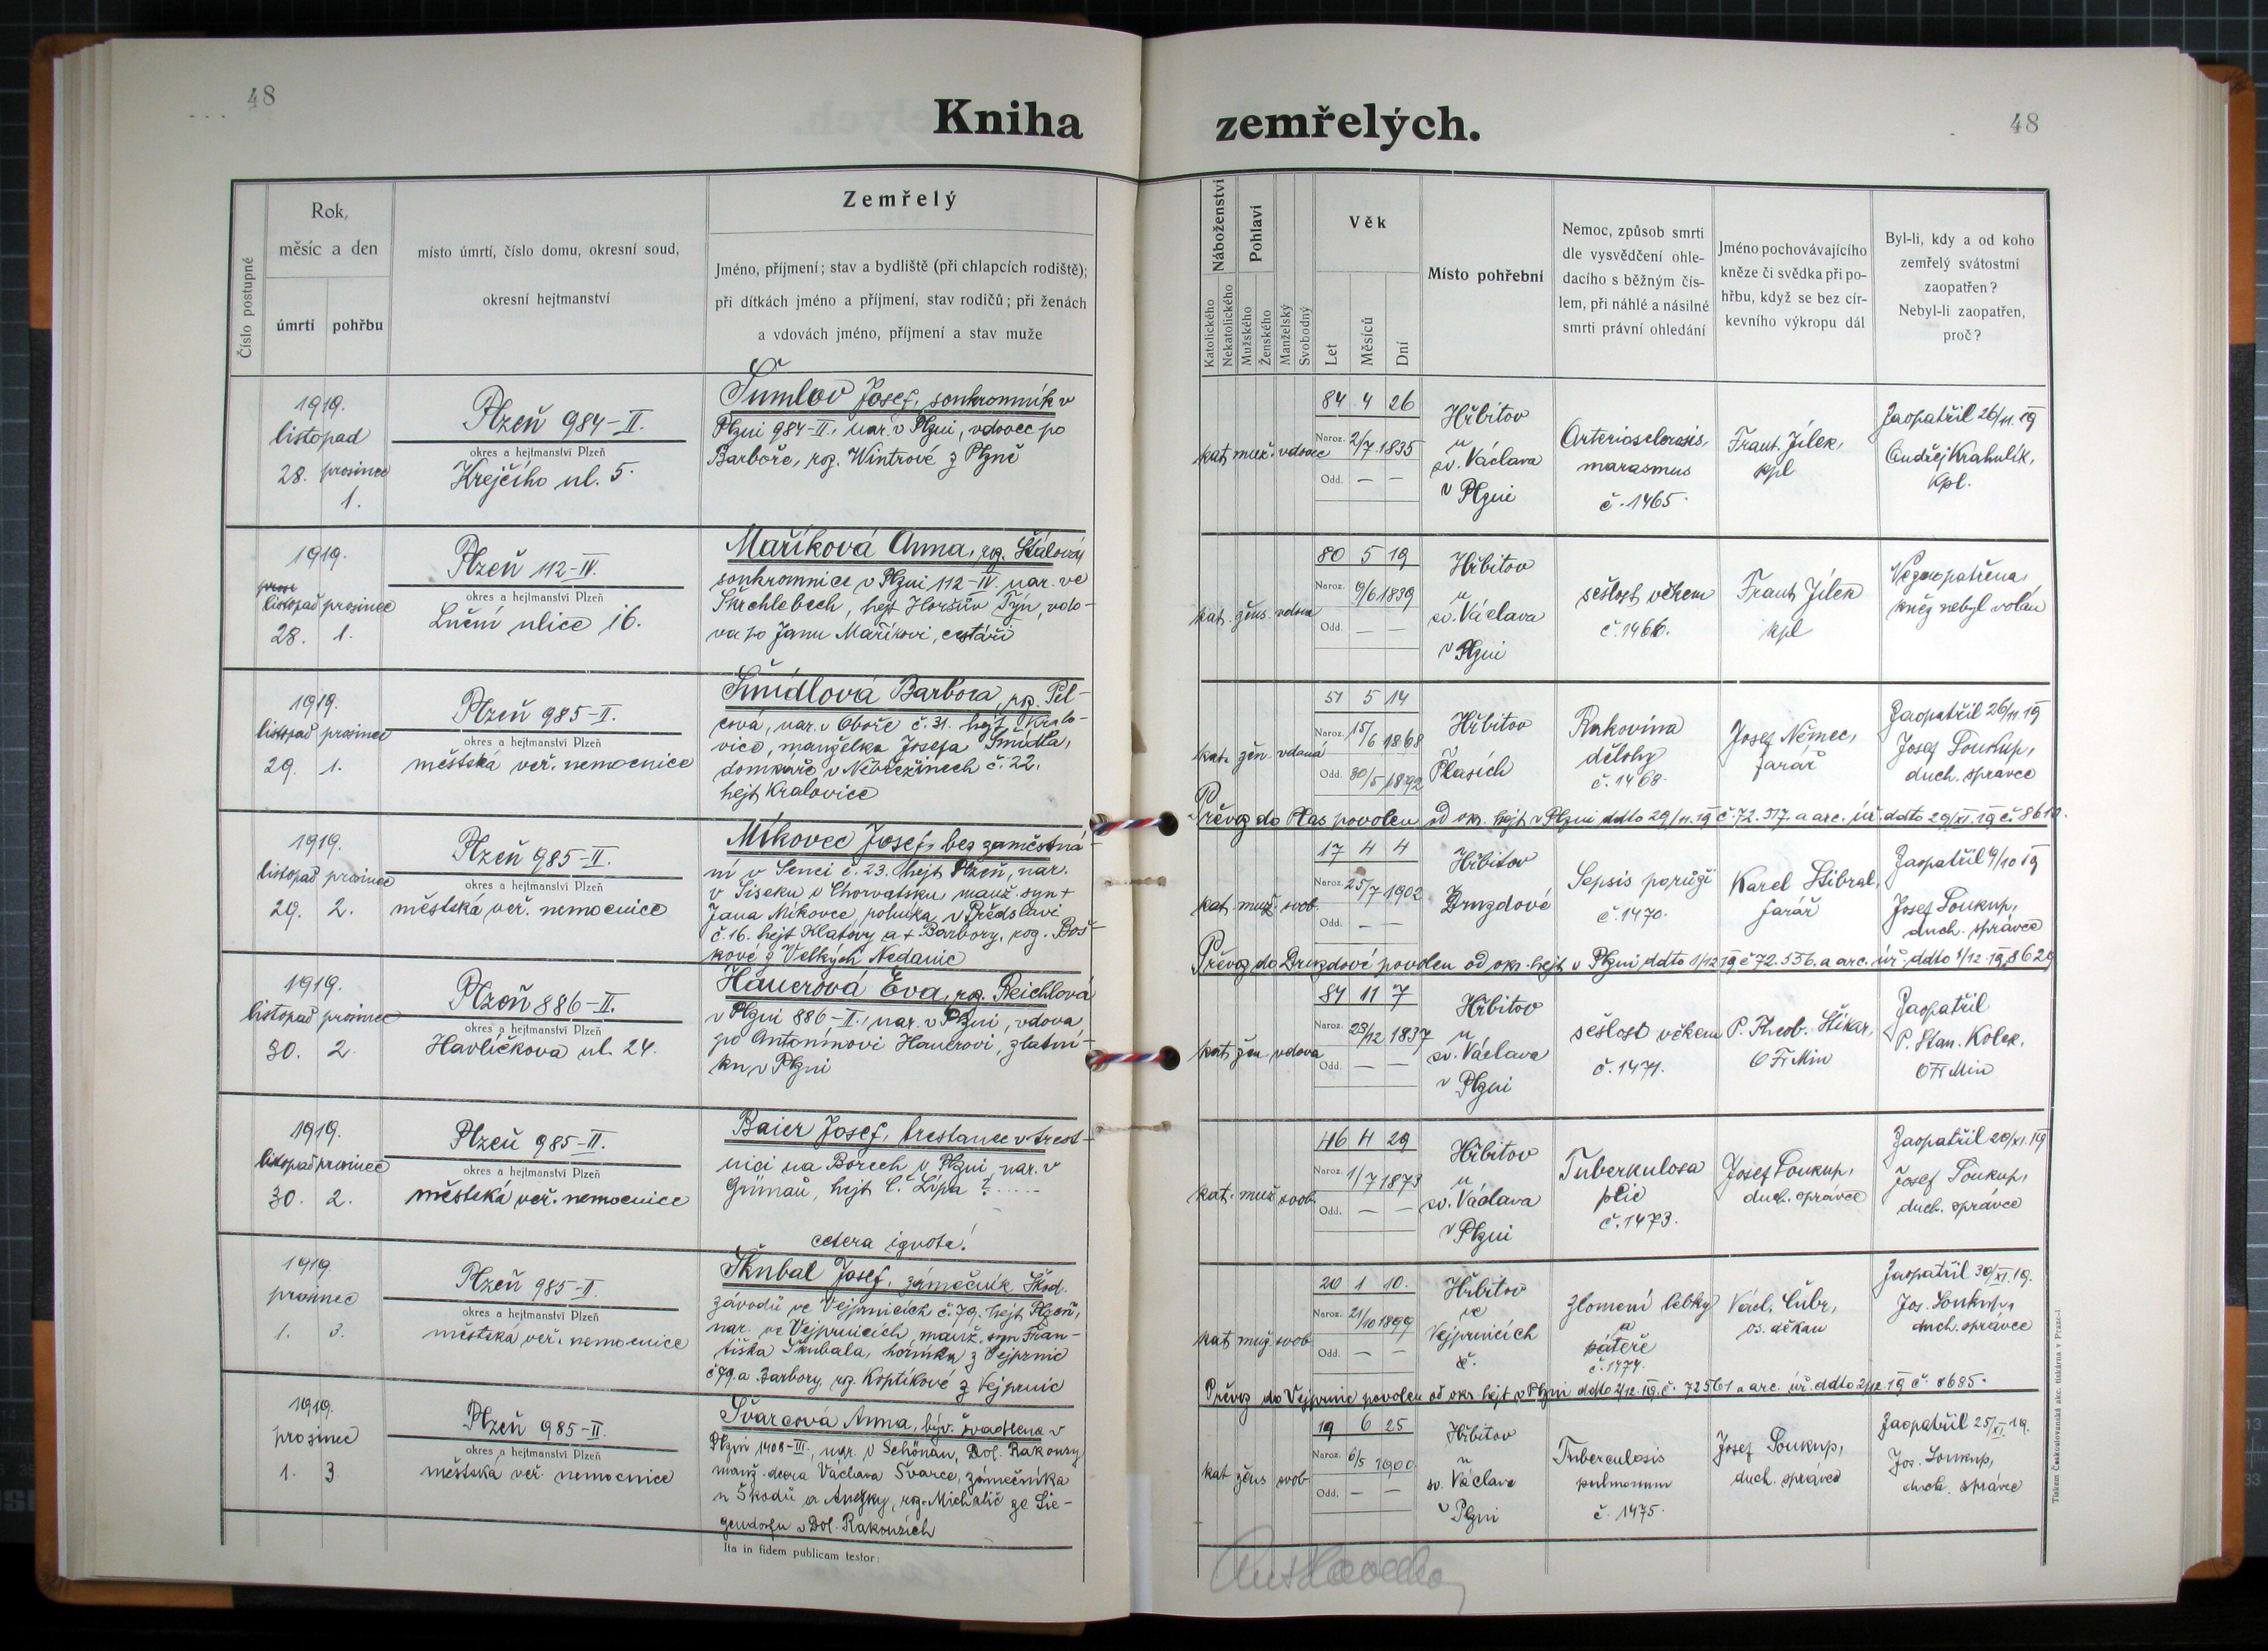 48
Kniha zemřelých.
48
Číslo postupné
Rok,
měsíc a den
úmrtí
pohřbu
místo úmrtí, číslo domu, okresní soud,
okresní hejtmanství
Zemřelý
Jméno, příjmení; stav a bydliště (při chlapcích rodiště);
při dítkách jméno a příjmení, stav rodičů; při ženách
a vdovách jméno, příjmení a stav muže
Náboženství
Katolického
Nekatolického
Pohlaví
Mužského
Ženského
Manželský
Svobodný
Věk
Let
Měsíců
Dní
Místo pohřební
Nemoc, způsob smrti
dle vysvědčení ohle-
dacího s běžným čís-
lem, při náhlé a násilné
smrti právní ohledání
Jméno pochovávajícího
kněze či svědka při po-
hřbu, když se bez cír-
kevního výkropu dál
Byl-li, kdy a od koho
zemřelý svátostmi
zaopatřen?
Nebyl-li zaopatřen,
proč?
1919.
listopad
28. prosinec
1.
Plzeň 984-II.
okres a hejtmanství Plzeň
Krejčího ul. 5.
Šumlov Josef, soukromník v
Plzni 984-II., nar. v Plzni, vdovec po
Barboře, roz. Wintrové z Plzně
kat. muž. vdovec
84 4 26
Naroz. 2/7. 1835
Odd. — —
Hřbitov
u
sv. Václava
v Plzni
Arteriosclerosis,
marasmus
č. 1465.
Frant. Jílek,
kpl
Zaopatřil 26/11. 19
Ondřej Krahulík,
kpl.
1919.
listopad prosinec
28. 1.
Plzeň 112-IV.
okres a hejtmanství Plzeň
Luční ulice 16.
Maříková Anna, roz. Štálová
soukromnice v Plzni 112-IV. nar. ve
Skrchlebech, hejt Horšův Týn, vdo-
va po Janu Maříkovi, cestáři
kat. žens. vdova
80 5 19
Naroz. 9/6. 1839
Odd. — —
Hřbitov
u
sv. Václava
v Plzni
sešlost věkem
č. 1466.
Frant Jílek
kpl
Nezaopatřena,
kněz nebyl volán
1919.
listopad prosinec
29. 1.
Plzeň 985-II.
okres a hejtmanství Plzeň
městská veř. nemocnice
Šmídlová Barbora, roz. Pel-
cová, nar. v Oboře č. 31. hejt Kralo-
vice, manželka Josefa Šmídla,
domkáře v Nebřežinech č. 22.
hejt Kralovice
kat. žen. vdaná
51 5 14
Naroz. 15/6 1868
Odd. 30/5 1892
Hřbitov
Plasích
Rakovina
dělohy
č. 1468.
Josef Němec,
farář
Zaopatřil 26/11. 19
Josef Soukup,
duch. správce
Převoz do Plas povolen od okr. hejt v Plzni ddto 29/11. 19 č. 72.517 a arc. úř. ddto 29/XI. 19 č. 8610.
1919.
listopad prosinec
29. 2.
Plzeň 985-II.
okres a hejtmanství Plzeň
městská veř. nemocnice
Míkovec Josef, bez zaměstná-
ní v Senci č. 23. hejt Plzeň, nar.
v Siseku v Chorvatsku, manž. syn +
Jana Míkovce, rolníka v Předslavi
č. 16. hejt Klatovy a + Barbory, roz. Boš-
kové z Velkých Nedanic
kat. muž. svob.
17 4 4
Naroz. 25/7 1902
Odd. — —
Hřbitov
Druzdové
Sepsis porůži
č. 1470.
Karel Stibral,
farář
Zaopatřil 9/10 19
Josef Soukup,
duch. správce
Převoz do Druzdové povolen od okr. hejt v Plzni, ddto 1/12 19 č 72.556. a arc. úř. ddto 1/12 19, 8629
1919.
listopad prosinec
30. 2.
Plzeň 886-II.
okres a hejtmanství Plzeň
Havlíčkova ul. 24.
Hauerová Eva, roz. Reichlová
v Plzni 886-II., nar. v Plzni, vdova
po Antonínovi Hauerovi, zlatní-
ku v Plzni
kat. žen vdova
84 11 7
Naroz. 23/12 1837
Odd. — —
Hřbitov
u
sv. Václava
v Plzni
sešlost věkem
č. 1471.
P. Theob. Štikar,
OFrMin
Zaopatřil
P. Stan. Kolek,
OFrMin
1919.
listopad prosinec
30. 2.
Plzeň 985-II.
okres a hejtmanství Plzeň
městská veř. nemocnice
Baier Josef, trestanec v trest-
nici na Borech v Plzni, nar. v
Grünau, hejt Č. Lípa ?......
cetera ignota!
kat. muž svob.
46 4 29
Naroz. 1/7 1873
Odd. — —
Hřbitov
u
sv. Václava
v Plzni
Tuberkulosa
plic
č. 1473.
Josef Soukup,
duch. správce
Zaopatřil 20/XI. 19
Josef Soukup,
duch. správce
1919.
prosinec
1. 3.
Plzeň 985-II.
okres a hejtmanství Plzeň
městská veř. nemocnice
Škubal Josef, zámečník Škod.
závodů ve Vejprnicích č. 79. hejt Plzeň,
nar. ve Vejprnicích, manž. syn Fran-
tiška Škubala, horníka z Vejprnic
č 79. a Barbory, roz. Koptíkové z Vejprnic
kat. muž svob.
20 1 10.
Naroz. 21/10 1899
Odd. — —
Hřbitov
ve
Vejprnicích
č.
Zlomení lebky
a
páteře
č. 1474.
Václ. Cubr,
os. děkan
Zaopatřil 30/XI. 19.
Jos. Soukup,
duch. správce
Převoz do Vejprnic povolen od okr. hejt v Plzni ddto 2/12. 19. č. 72561 a arc. úř. ddto 2/12. 19 č. 8685.
1919.
prosinec
1. 3
Plzeň 985-II.
okres a hejtmanství Plzeň
městská veř. nemocnice
Švarcová Anna, býv. švadlena v
Plzni 1408-III., nar. v Schönau, Dol. Rakousy
manž. dcera Václava Švarce, zámečníka
u Škodů a Anežky, roz. Michalič ze Sie-
gendorfu v Dol. Rakousích
kat žens svob.
19 6 25
Naroz. 6/5 1900
Odd. — —
Hřbitov
u
sv. Václava
v Plzni
Tuberculosis
pulmonum
č. 1475.
Josef Soukup,
duch. správce
Zaopatřil 25/XI. 19.
Jos. Soukup,
duch. správce
Ita in fidem publicam testor:
Tiskem Československá akc. tiskárna v Praze-I.